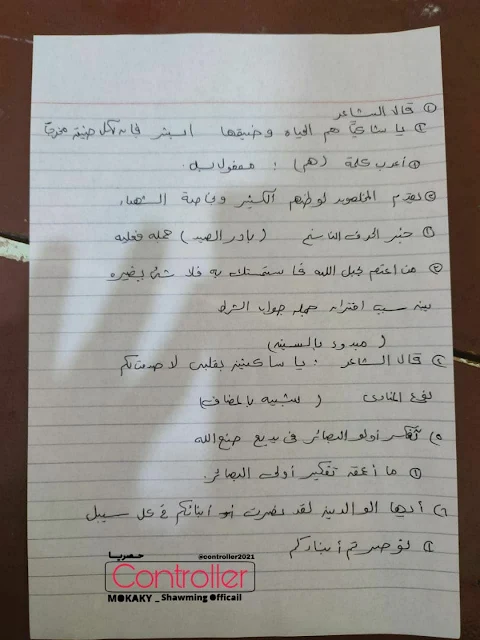 ① قال الشاعر
② يا شاكيًا هم الحياة وضيقها أبشر فإنه لكل ضيقة مخرجًا
① أعرب كلمة (هم) : مفعول به
② يقدم المخلصون لوطنهم الكثير وخاصة الشهداء
① خبر الحرف الناسخ ( ) جملة فعلية
③ من اعتصم بحبل الله فاستمسك به فلا شئ يضيره
بين سبب اقتران جملة جواب الشرط
( مبدوء بالسين )
④ قال الشاعر : يا ساكنين بقلبي لا عدمتكم
نوع المنادى ( شبيه بالمضاف )
٥) تفكر أولو البصائر في بديع صنع الله
① ما أعمق تفكير أولي البصائر.
٦) أيها الوالدين لقد أبنائكم في كل سبيل
① أبناءكم
حصريا
@controller2021
Controller
MOKAKY _ Shawming Officail